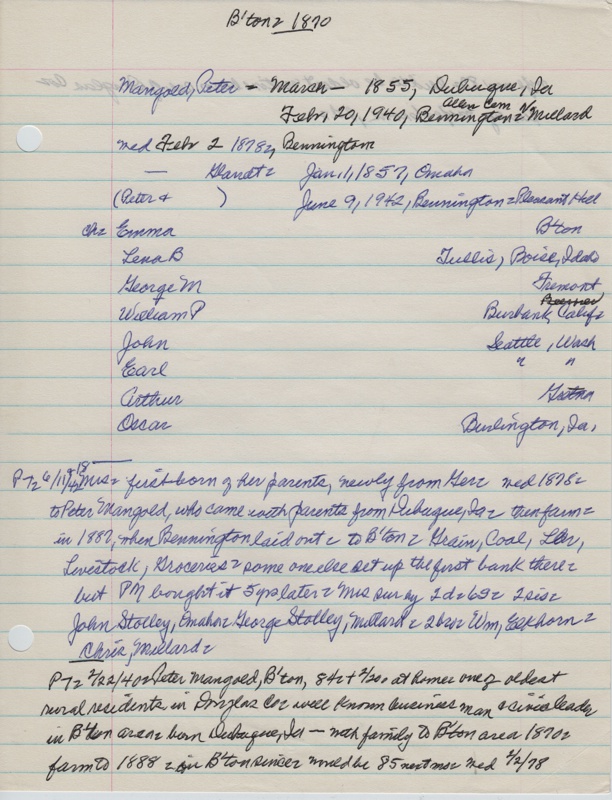 B'ton 1870
Mangold, Peter - March - 1855, Dubuque, Ia
Febr, 20, 1940, Bennington Allen Cem N Millard
med Febr 2 1878, Bennington
— Glandt Jan, 1, 1857, Omaha
(Peter + ) June 9, 1942, Bennington Pleasant Hill
Ch Emma B'ton
Lena B Tullis, Boise, Idaho
George M Fremont
William P Burbank, Calif
John Seattle, Wash
Earl " "
Arthur Gretna
Oscar Burlington, Ia.
6/11/42 Mrs first born of her parents, newly from Ger med 1878
to Peter Mangold, who came with parents from Dubuque, Ia then farm
in 1887, when Bennington laid out to B'ton Grain, Coal, Lbr,
Livestock, Groceries some one else set up the first bank there
but PM bought it 5 yrs later Mrs sur by 2 d 6 s 2 sis
John Stolley, Omaha George Stolley, Millard 2 brs Wm, Elkhorn
Chris, Millard
2/22/40 Peter Mangold, B'ton, 84 + 2/20 at home one of oldest
rural residents in Douglas Co well known business man + civic leader
in B'ton area born Dubuque, Ia — with family to B'ton area 1870
farm to 1888 in B'ton since would be 85 next mo med 2/2/78